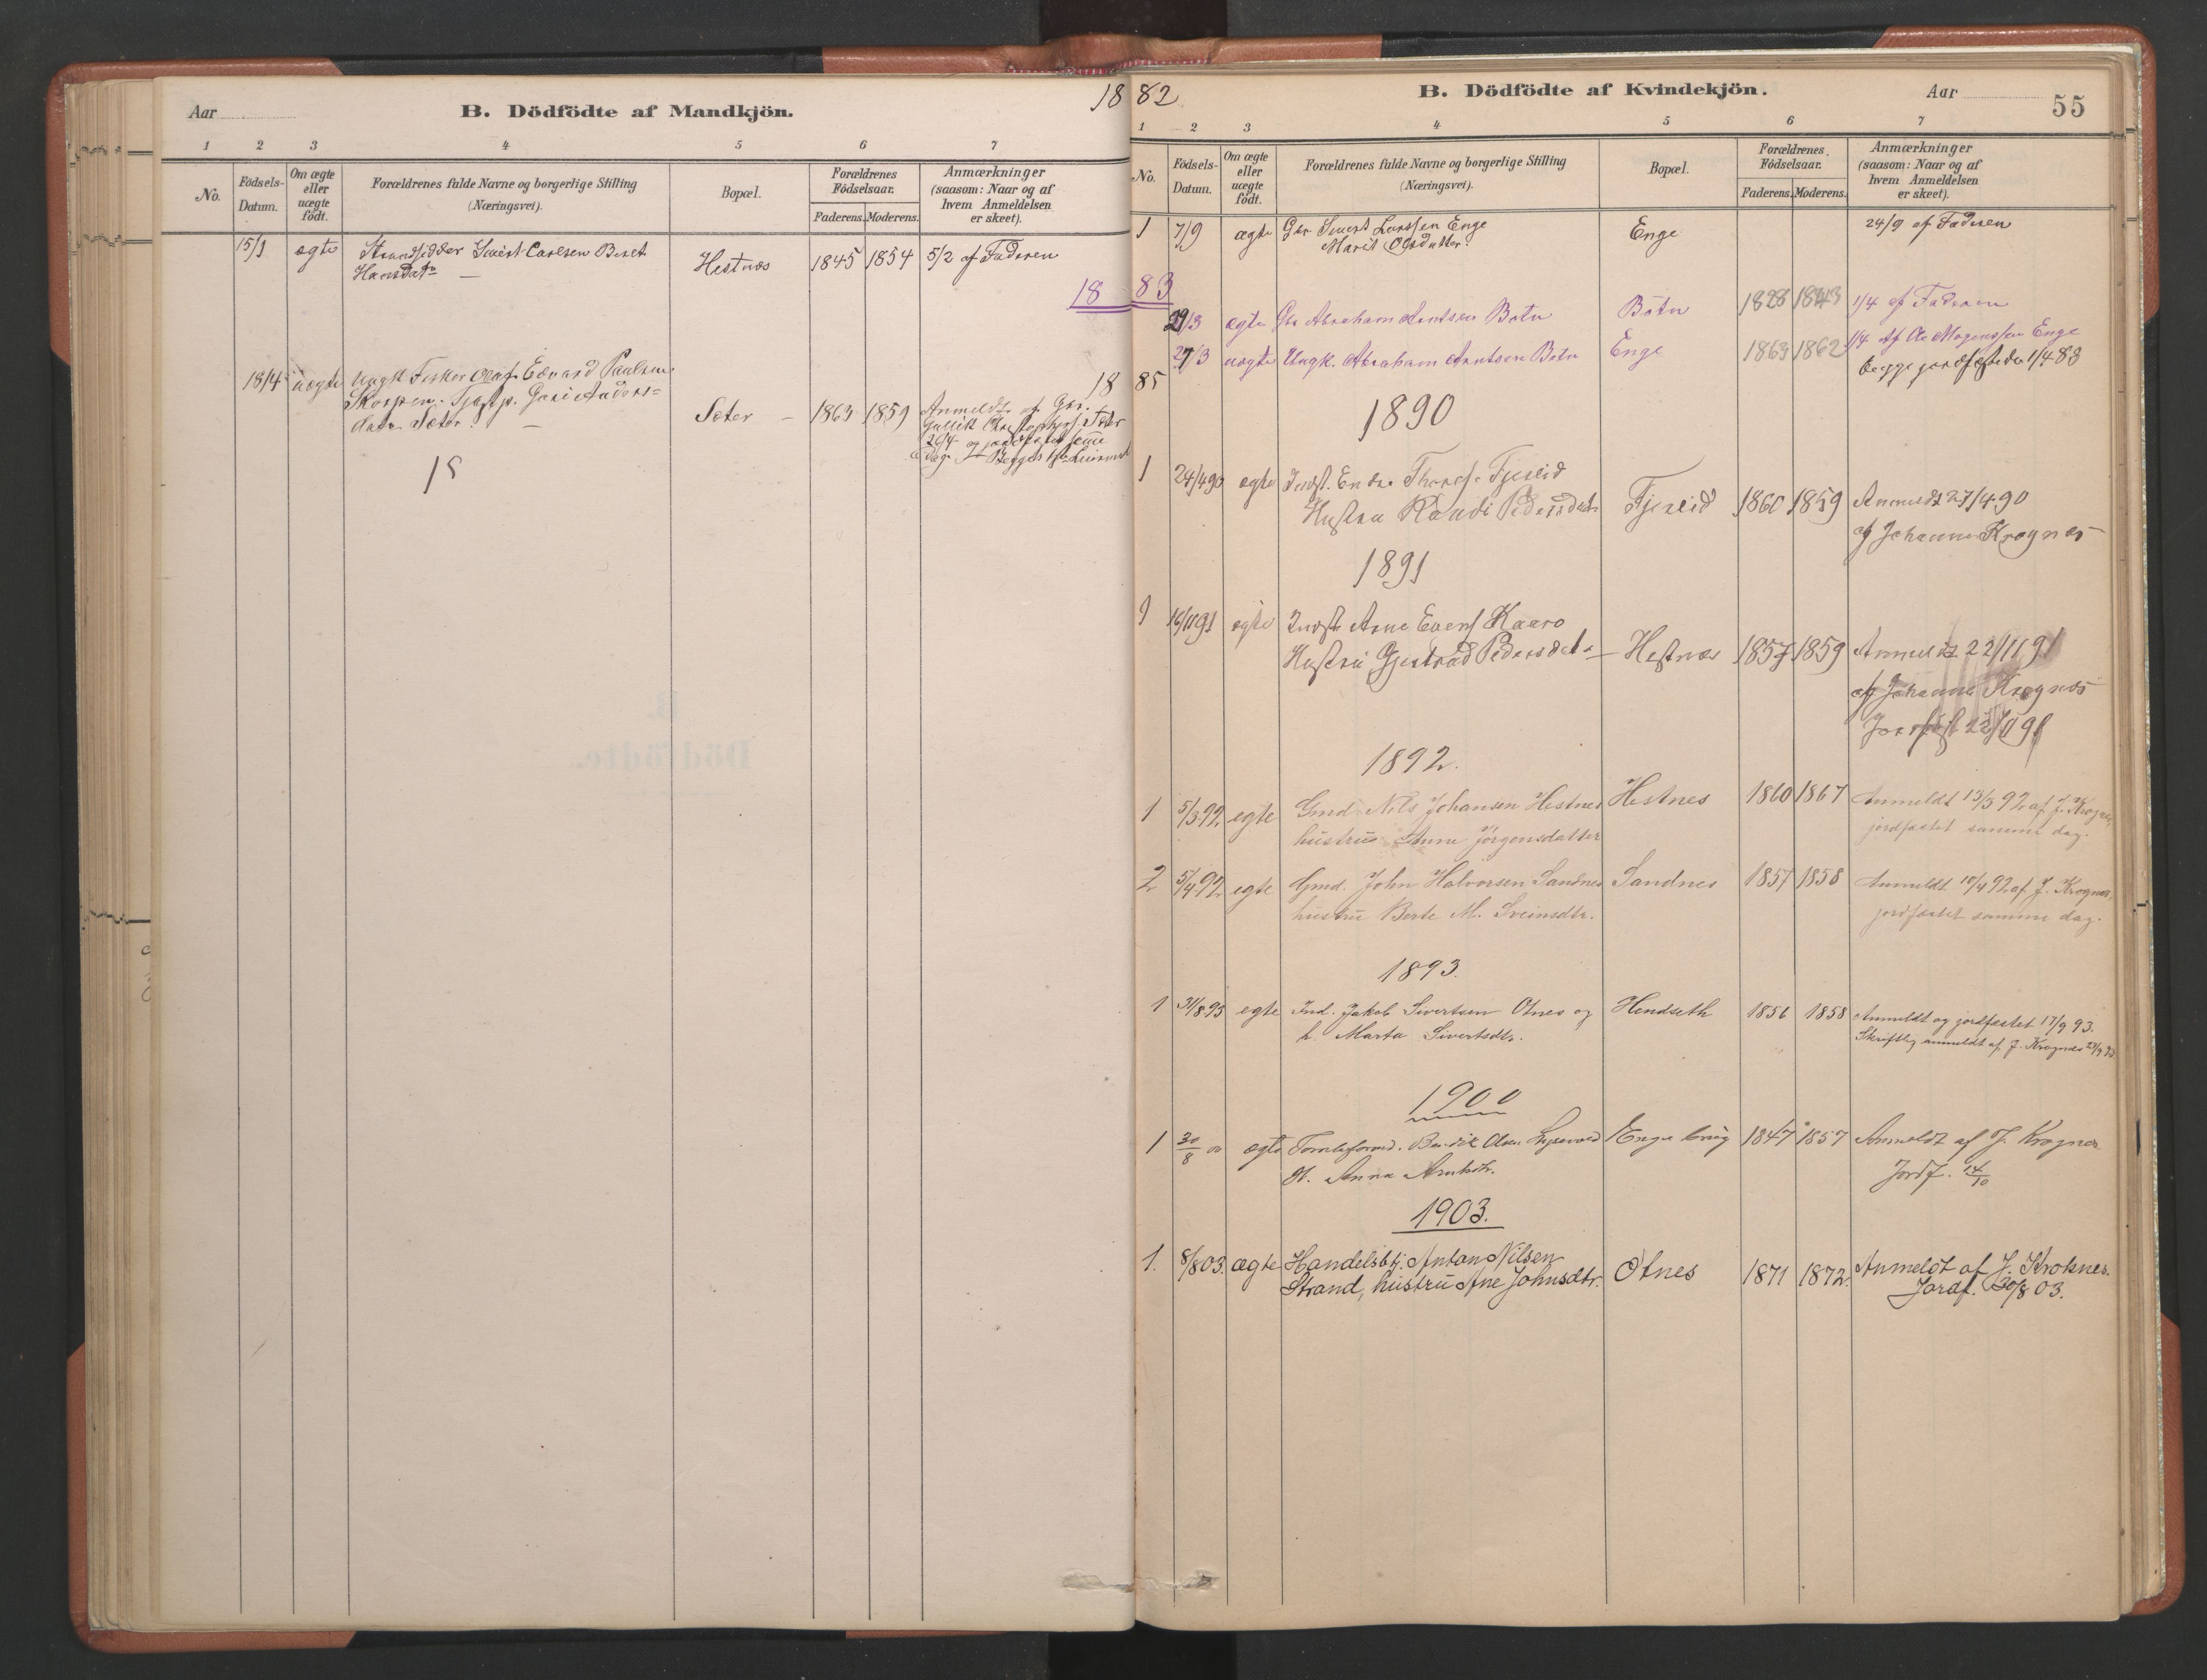 Aar
B. Dödfödte af Mandkjön.
18
1 2 3 4 5 6 7
No.
Födsels-Datum.
Om ægte eller uægte födt.
Forældrenes fulde Navne og borgerlige Stilling (Næringsvei).
Bopæl.
Forældrenes Födselsaar.
Faderens. Moderens.
Anmærkninger (saasom: Naar og af hvem Anmeldelsen er skeet).
15/1 ægte Strandsidder Sivert Carlsen Beret Hestnæs 1845 1854 5/2 af Faderen
Hansdatr
18
18/4 uægte Ungk Fisker Olaf Edvard Paulsen
18
Skorpen. Tjastp. Guri Anders= Sæter 1863 1859 Anmeldt af Gbr.
datr Sæter.
26/4 og jordfæstet samme
Dag
18
82
B. Dödfödte af Kvindekjön.
Aar
55
1 2 3 4 5 6 7
No.
Födsels-Datum.
Om ægte eller uægte födt.
Forældrenes fulde Navne og borgerlige Stilling (Næringsvei).
Bopæl.
Forældrenes Födselsaar.
Faderens. Moderens.
Anmærkninger (saasom: Naar og af hvem Anmeldelsen er skeet).
1 7/9 ægte Gbr Sivert Larssen Enge Enge 24/9 af Faderen
Marit Olsdatter.
83
29/3 ægte Gbr Abraham Arntsen Botn Botn 1828 1843 1/4 af Faderen
27/3 uægte Ungk. Abraham Arntsen Botn Enge 1863 1862 1/4 af Mogenssen Enge
Begge jordfæstede 1/4 83
85
1890
1 24/4 90 ægte Indst. Endre Fjeseid
Hustru Randi Pedersdatr Fjeseid 1860 1859 Anmeldt 27/4 90
af Johannes Krognæs
1891
1 16/11 91 ægte Indst. Arne Evens Kaaro
Hustru Gjertrud Pedersdatr Hestnæs 1857 1859 Anmeldt 22/11 91
af Johannes Krognæs
Jordfæst 22/11 91
1892.
1 5/3 92. egte Gmd Nils Johansen Hestnes Hestnes 1860 1867 Anmeldt 13/3 92 af J. Krognes,
hustru Anne Jörgensdatter jordfæstet samme dag.
2 5/4 92 egte Gmd. John Halvorsen Sandnes Sandnes 1857 1858 Anmeldt 10/4 92 af J. Krognes,
hustru Berte M. Sveinsdtr. jordfæstet samme dag.
1893.
1 31/8 93 egte Ind. Jakob Sivertsen Otnes og Hendseth 1856 1858 Anmeldt og jordfæstet 17/9 93.
h. Marta Sivertsdtr. Skriftlig anmeldt af J. Krognes 24/9 93
1900
1 30/8 00 ægte Tomteformd. Bendik Olsen Enge brug 1847 1857 Anmeldt af J. Krognes
H. Anna Arntsdtr. Jordf. 14/10
1903.
1. 8/8 03. ægte Handelsbtj. Anton Nilsen Otnes 1871 1872 Anmeldt af J. Kroknes.
Strand, hustru Ane Johnsdtr. Jordf. 30/8 03.